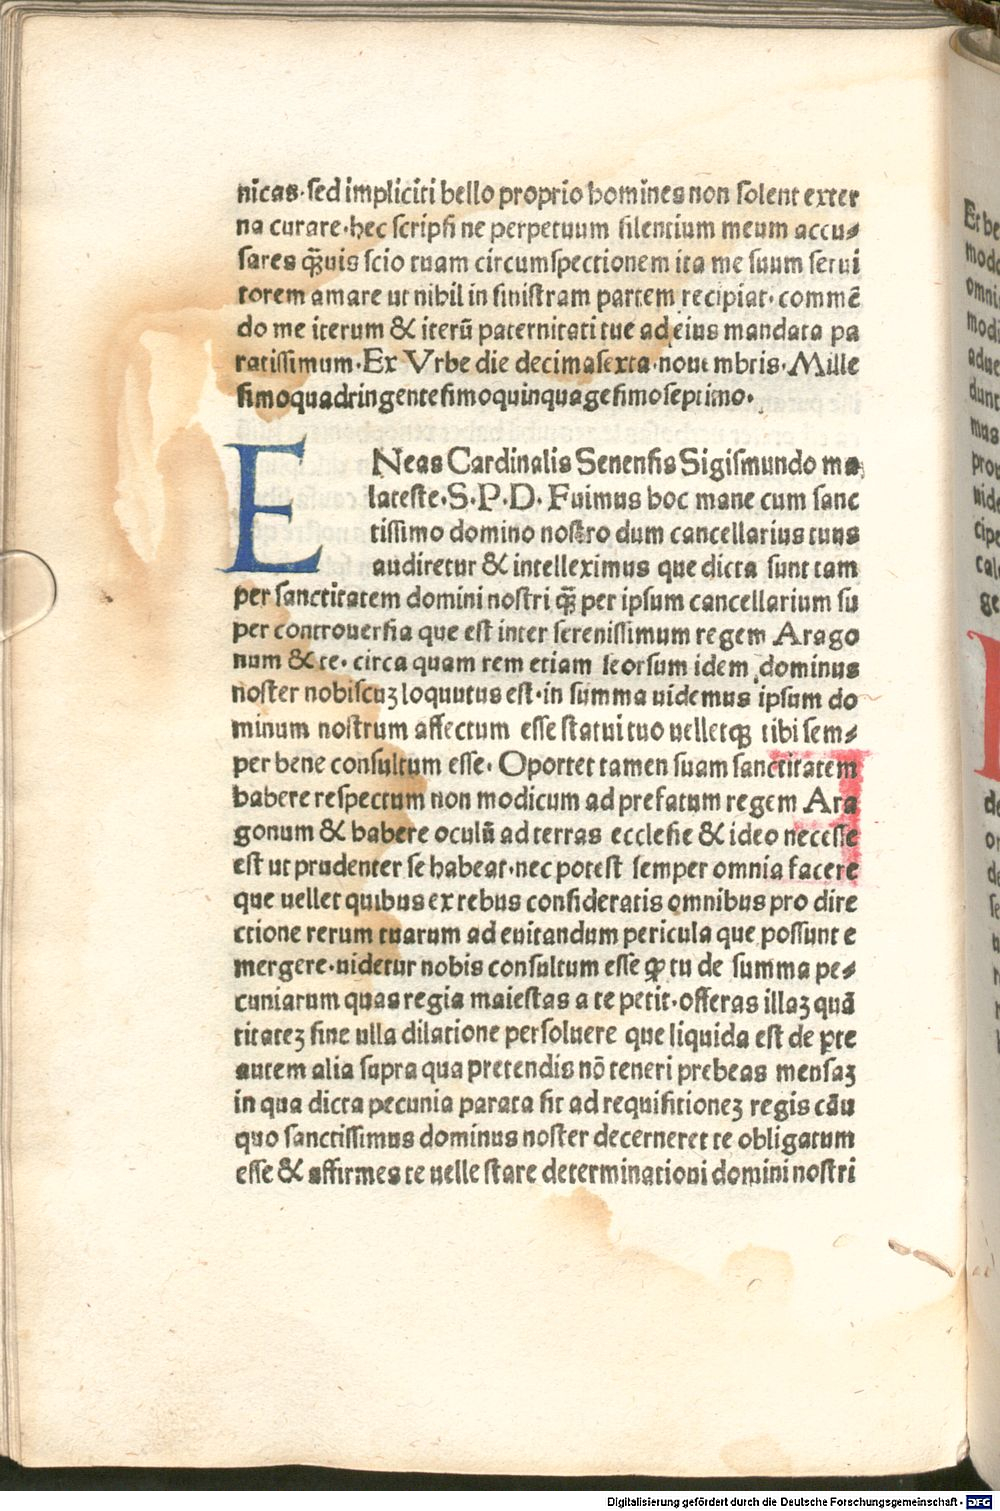 nicas·sed impliciti bello proprio homines non solent exter
na curare·hec scripsi ne perpetuum silentium meum accu⸗
sares qꝫuis scio tuam circumspectionem ita me suum serui
torem amare ut nihil in sinistram partem recipiat·commē
do me iterum & iterū paternitati tue ad eius mandata pa
ratissimum·Ex Vrbe die decimasexta·nouembris·Mille
simoquadringentesimoquinquagesimoseptimo·
ENeas Cardinalis Senensis Sigismundo ma
lateste·S·P·D·Fuimus hoc mane cum sanc
tissimo domino nostro dum cancellarius tuus
audiretur & intelleximus que dicta sunt tam
per sanctitatem domini nostri qꝫ per ipsum cancellarium su
per controuersia que est inter serenissimum regem Arago
num & te·circa quam rem etiam seorsum idem dominus
noster nobiscuꝫ loquutus est·in summa uidemus ipsum do
minum nostrum affectum esse statui tuo uelletqꝫ tibi sem⸗
per bene consultum esse·Oportet tamen suam sanctitatem
habere respectum non modicum ad prefatum regem Ara
gonum & habere oculū ad terras ecclesie & ideo necesse
est ut prudenter se habeat·nec potest semper omnia facere
que uellet quibus ex rebus consideratis omnibus pro dire
ctione rerum tuarum ad euitandum pericula que possunt e
mergere·uidetur nobis consultum esse ꝙ tu de summa pe⸗
cuniarum quas regia maiestas a te petit·offeras illaꝫ quā
titateꝫ sine ulla dilatione persoluere que liquida est de ꝑte
autem alia supra qua pretendis nō teneri prebeas mensaꝫ
in qua dicta pecunia parata sit ad requisitioneꝫ regis cāu
quo sanctissimus dominus noster decerneret te obligatum
esse & affirmes te uelle stare determinationi domini nostri
Digitalisierung gefördert durch die Deutsche Forschungsgemeinschaft - DFG